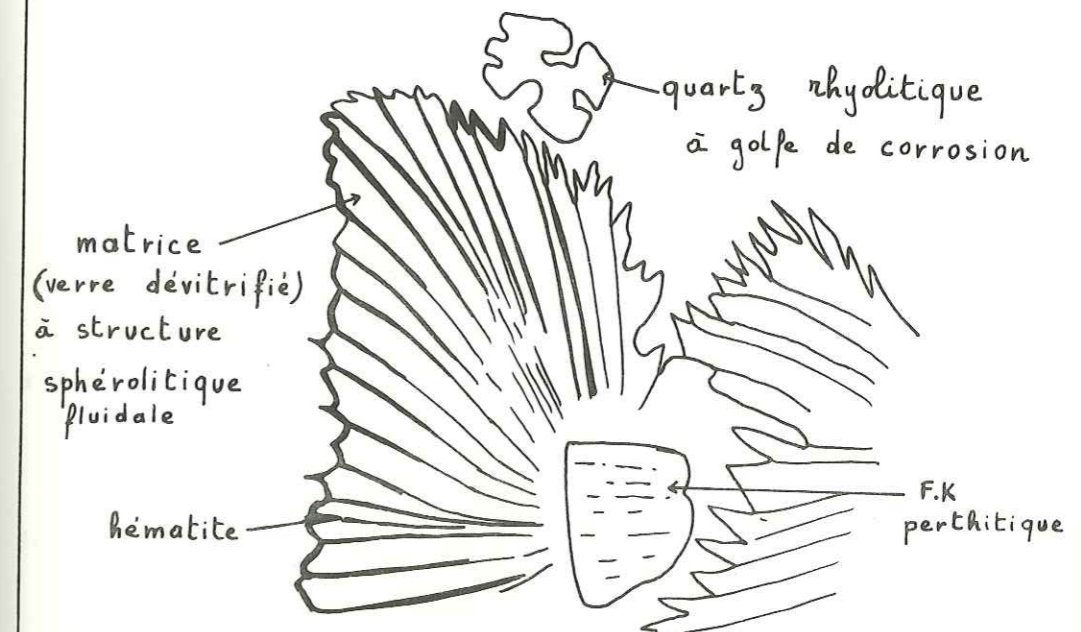 quartz rhyolitique
à golfe de corrosion
matrice
(verre dévitrifié)
à structure
sphérolitique
fluidale
hématite
F.K
perthitique